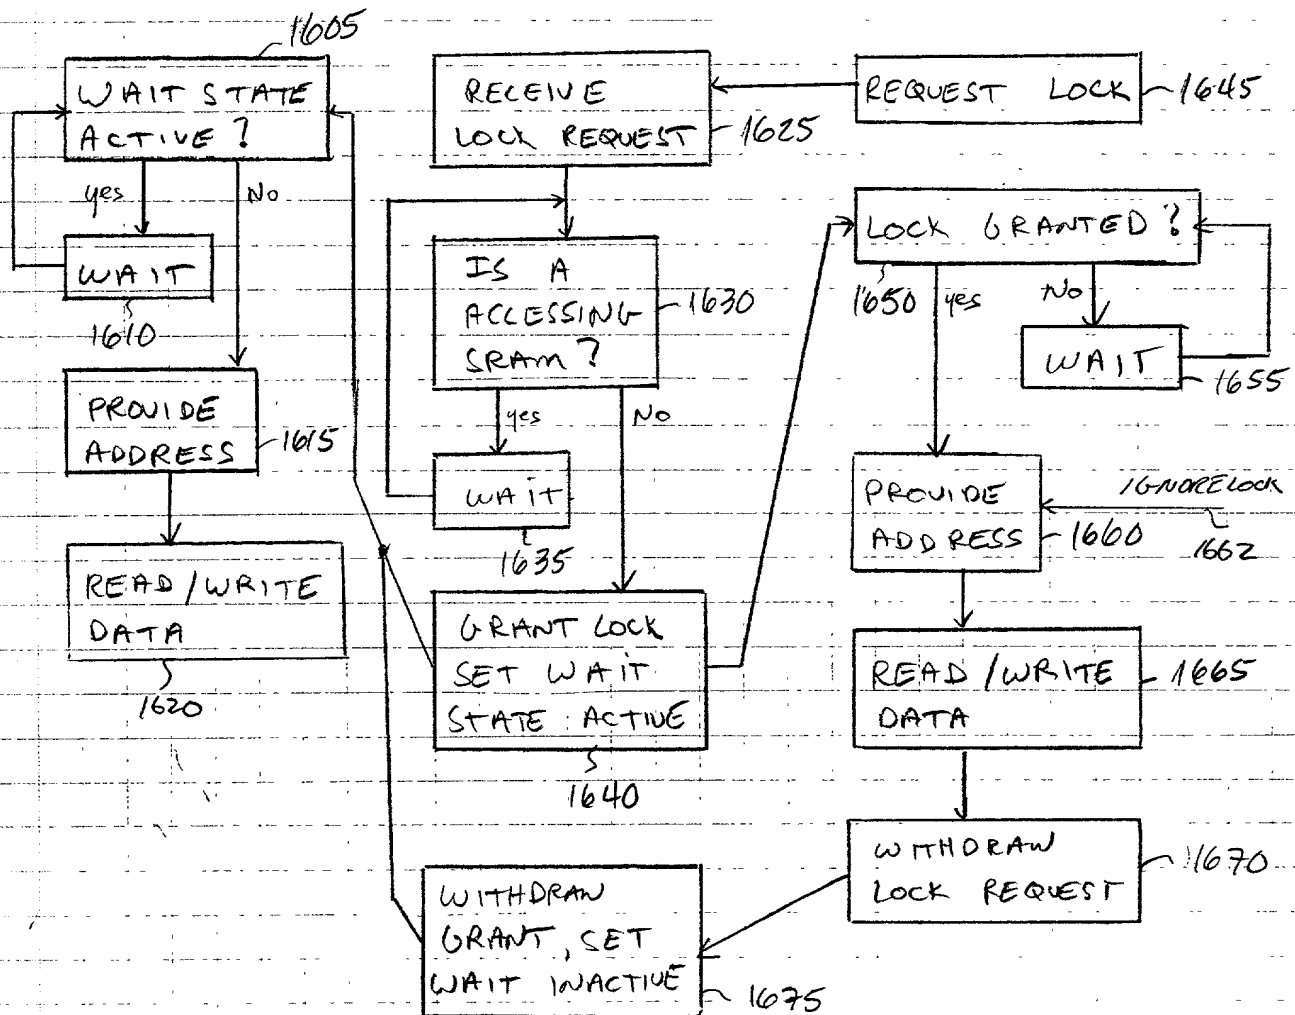 1605
WAIT STATE
ACTIVE?
yes
No
WAIT
1610
PROVIDE
ADDRESS
1615
READ/WRITE
DATA
1620
RECEIVE
LOCK REQUEST
1625
IS A
ACCESSING
SRAM?
1630
yes
No
WAIT
1635
GRANT LOCK
SET WAIT
STATE ACTIVE
1640
WITHDRAW
GRANT, SET
WAIT INACTIVE
1675
REQUEST LOCK
1645
LOCK GRANTED?
1650
yes
No
WAIT
1655
PROVIDE
ADDRESS
1660
IGNORE LOCK
1662
READ/WRITE
DATA
1665
WITHDRAW
LOCK REQUEST
1670